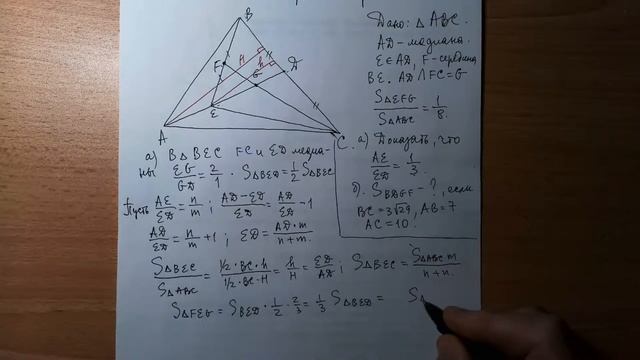 B
F
H
h
D
G
E
A
C
Дано: △ABC.
AD-медиана.
E∈AD, F-середина
BE. AD∩FC=G
S△EFG/S△ABC = 1/8.
а) Доказать, что
AE/ED = 1/3.
б) S BDGF - ?, если
BC=3√29, AB=7
AC=10.
а) В △BEC FC и ED медиа-
ны EG/GD = 2/1 · S△BED = 1/2 S△BEC
Пусть AE/ED = n/m ; AD-ED/ED = AD/ED - 1
AD/ED = n/m + 1 ; ED = AD·m/n+m.
S△BEC/S△ABC = 1/2·BC·h/1/2·BC·H = h/H = ED/AD ; S△BEC = S△ABC m/n+n.
S△FEG = S BED · 1/2 · 2/3 = 1/3 S△BED = S△